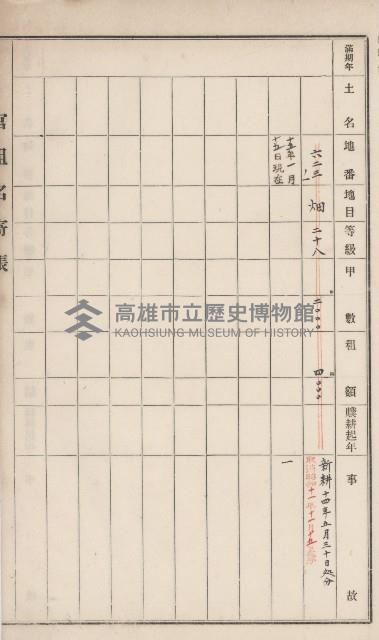 滿期年
土名
地番
地目
等級
甲數
租額
贌耕起年
事故
六二三
畑
二十八
二〇〇〇
四〇〇〇
新耕十四年五月三十日処分
十一年十一月十五
十五年一月
十五日現在
一
官租名寄帳
高雄市立歷史博物館
KAOHSIUNG MUSEUM OF HISTORY